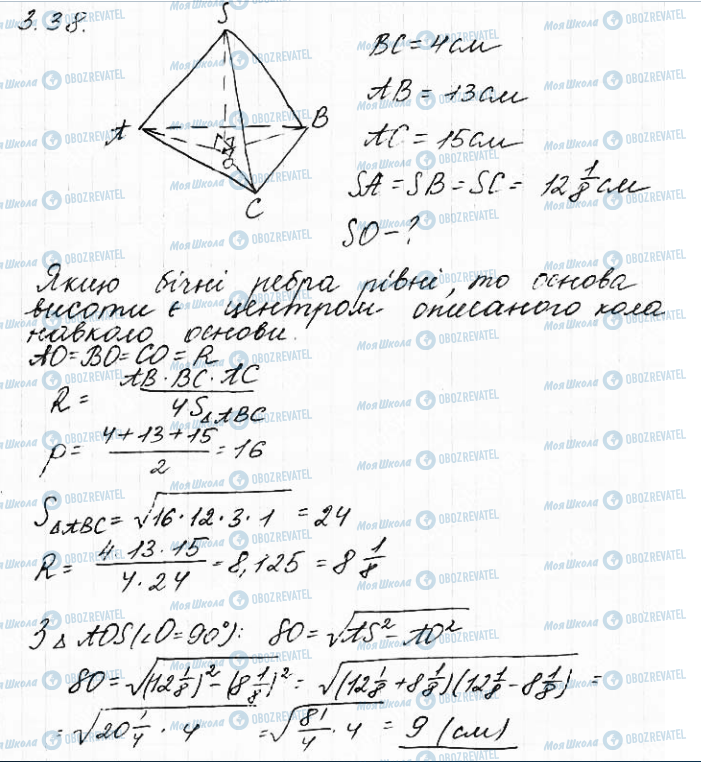 3.38.
S
A
B
O
C
BC = 4 см
AB = 13 см
AC = 15 см
SA = SB = SC = 12 1/8 см
SO - ?
Якщо бічні ребра рівні, то основа
висоти є центром описаного кола
навколо основи.
AO = BO = CO = R
R = AB · BC · AC / 4S△ABC
p = 4 + 13 + 15 / 2 = 16
S△ABC = √16 · 12 · 3 · 1 = 24
R = 4 · 13 · 15 / 4 · 24 = 8,125 = 8 1/8
З △ AOS (∠O = 90°): SO = √AS² - AO²
SO = √(12 1/8)² - (8 1/8)² = √(12 1/8 + 8 1/8)(12 1/8 - 8 1/8) =
= √20 1/4 · 4 = √81/4 · 4 = 9 (см)
Моя Школа OBOZREVATEL